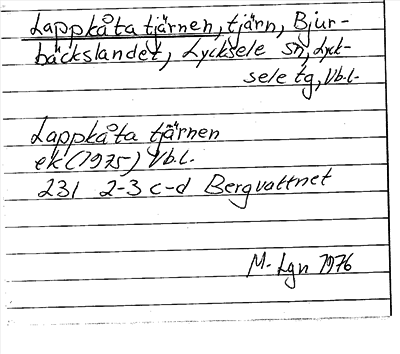 Lappkåtatjärnen, tjärn, Bjur-
bäckslandet, Lycksele sn, Lyck-
sele tg, Vb.l.
Lappkåta tjärnen
ek (1975) Vb.l.
231 2-3 c-d Bergvattnet
M. Lgn 1976